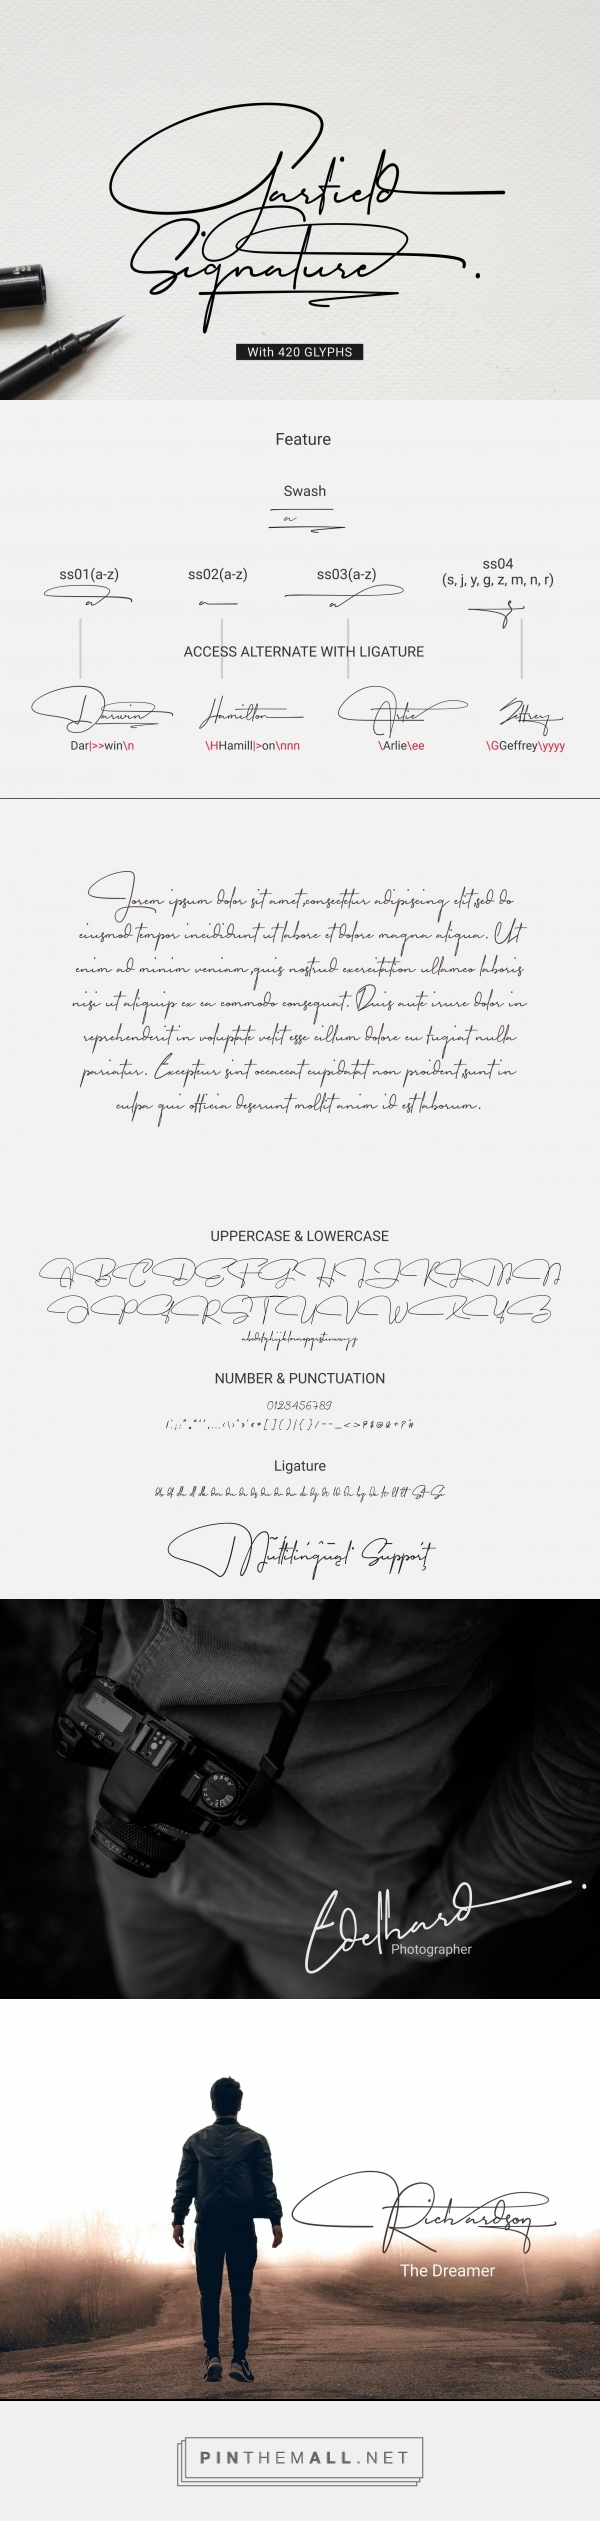 Garfield
Signature.
With 420 GLYPHS
Feature
Swash
a
ss01(a-z) ss02(a-z) ss03(a-z) ss04
(s, j, y, g, z, m, n, r)
a a a
ACCESS ALTERNATE WITH LIGATURE
Darwin Hamilton Arlie Jeffrey
Dar|>>win\n \HHamill|>on\nnn \Arlie\ee \GGeffrey\yyyy
Lorem ipsum dolor sit amet,consectetur adipiscing elit,sed do
eiusmod tempor incididunt ut labore et dolore magna aliqua. Ut
enim ad minim veniam,quis nostrud exercitation ullamco laboris
nisi ut aliquip ex ea commodo consequat. Duis aute irure dolor in
reprehenderit in voluptate velit esse cillum dolore eu fugiat nulla
pariatur. Excepteur sint occaecat cupidatat non proident,sunt in
culpa qui officia deserunt mollit anim id est laborum.
UPPERCASE & LOWERCASE
A B C D E F G H I J K L M N
O P Q R S T U V W X Y Z
abcdefghijklmnopqrstuvwxyz
NUMBER & PUNCTUATION
0123456789
Ligature
Multilingual Support
Edelhard.
Photographer
Richardson
The Dreamer
PINTHEMALL.NET